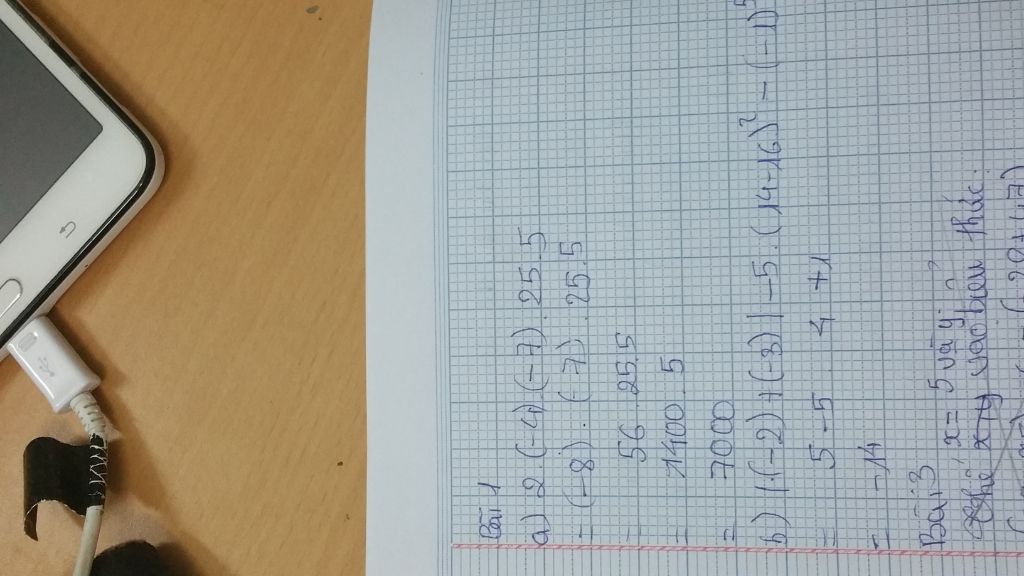 Bài 1
a) 2.(-4).(-7).25.5
= (-8).(-7).25.5
= 56.25.5
= 1400.5
= 7000
b) |(-2)+(-3)|-5.(14-16)² - (-1)
= 5-5.4+1
= -14
Bài 3
x = 5 và y
Thế x, y vào biểu thức.